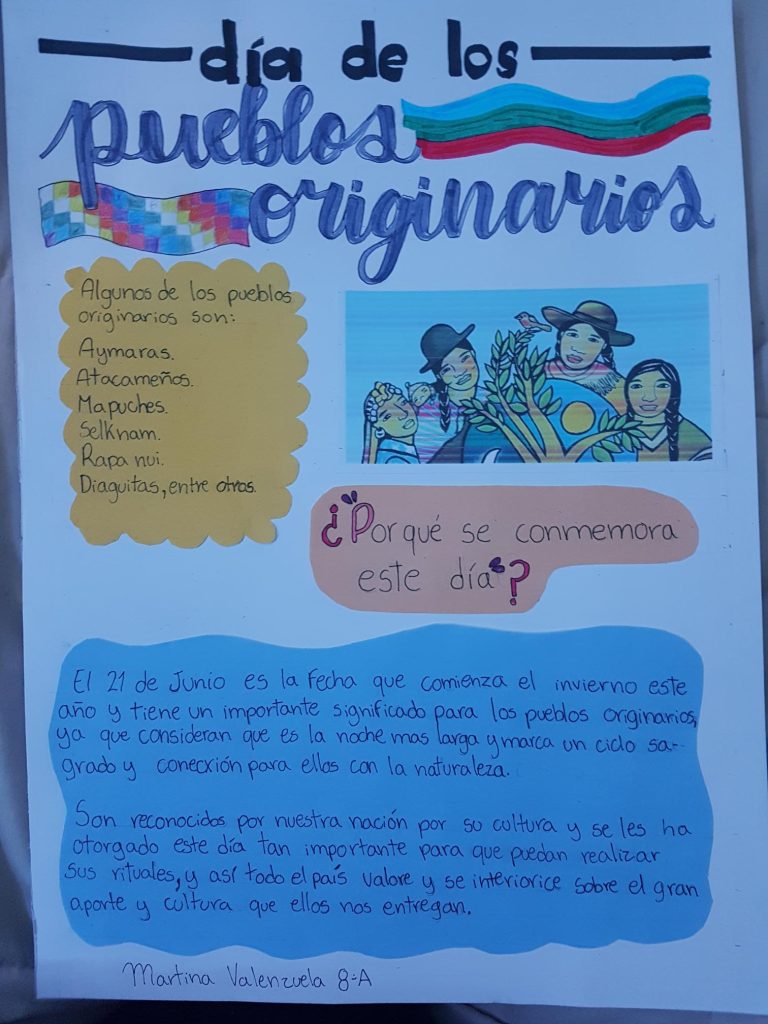 día de los
pueblos
originarios
Algunos de los pueblos
originarios son:
Aymaras.
Atacameños.
Mapuches.
Selknam.
Rapa nui.
Diaguitas, entre otros.
¿Porqué se conmemora
este día?
El 21 de Junio es la Fecha que comienza el invierno este
año y tiene un importante significado para los pueblos originarios,
ya que consideran que es la noche mas larga y marca un ciclo sa-
grado y conecxión para ellos con la naturaleza.
Son reconocidos por nuestra nación por su cultura y se les ha
otorgado este día tan importante para que puedan realizar
sus rituales, y así todo el país valore y se interiorice sobre el gran
aporte y cultura que ellos nos entregan.
Martina Valenzuela 8-A